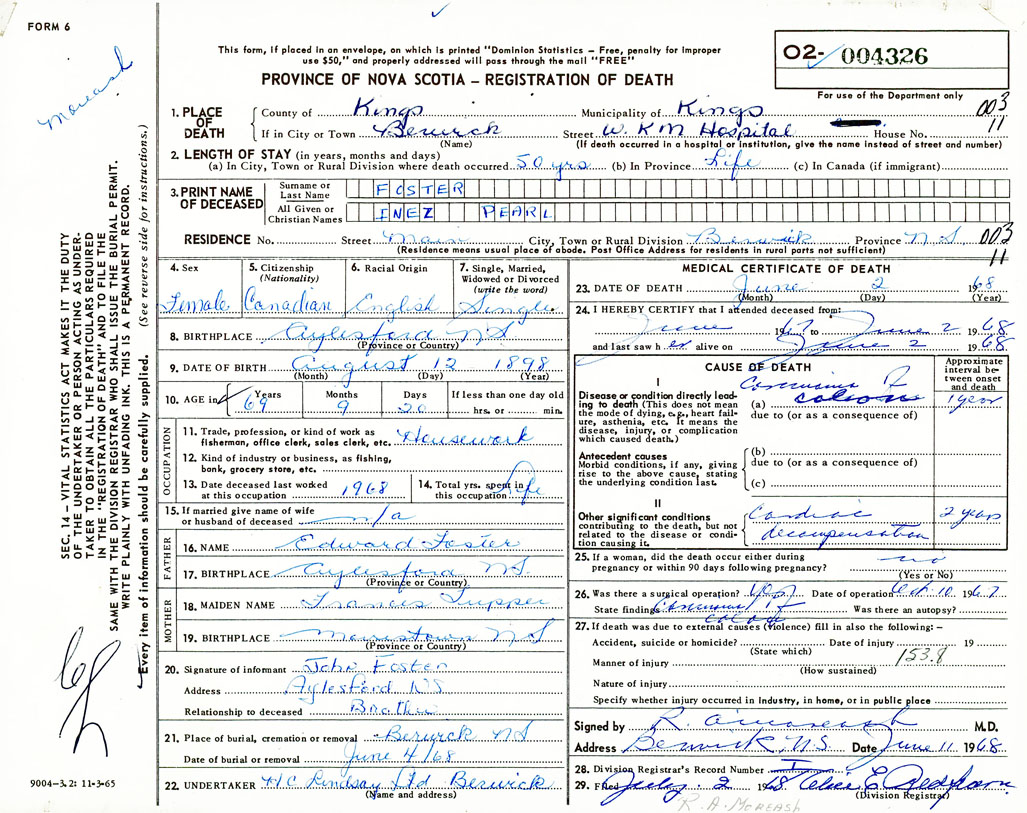 FORM 6
Moreash
This form, if placed in an envelope, on which is printed "Dominion Statistics – Free, penalty for improper
use $50," and properly addressed will pass through the mail "FREE"
PROVINCE OF NOVA SCOTIA – REGISTRATION OF DEATH
02- 004326
For use of the Department only
003
11
1. PLACE OF DEATH
County of Kings Municipality of Kings
If in City or Town Berwick Street W. K M Hospital House No.
(Name) (If death occurred in a hospital or institution, give the name instead of street and number)
2. LENGTH OF STAY (in years, months and days)
(a) In City, Town or Rural Division where death occurred 50 yrs (b) In Province Life (c) In Canada (if immigrant)
3. PRINT NAME OF DECEASED
Surname or Last Name FOSTER
All Given or Christian Names INEZ PEARL
RESIDENCE No. Street Main City, Town or Rural Division Berwick Province N S
003
11
(Residence means usual place of abode. Post Office Address for residents in rural parts not sufficient)
4. Sex
Female
5. Citizenship
(Nationality)
Canadian
6. Racial Origin
English
7. Single, Married,
Widowed or Divorced
(write the word)
Single
8. BIRTHPLACE Aylesford NS
(Province or Country)
9. DATE OF BIRTH August 12 1898
(Month) (Day) (Year)
10. AGE in Years Months Days If less than one day old
69 9 20 hrs. or min.
OCCUPATION
11. Trade, profession, or kind of work as
fisherman, office clerk, sales clerk, etc. Housework
12. Kind of industry or business, as fishing,
bank, grocery store, etc.
13. Date deceased last worked
at this occupation 1968
14. Total yrs. spent in
this occupation Life
15. If married give name of wife
or husband of deceased n/a
FATHER
16. NAME Edward Foster
17. BIRTHPLACE Aylesford NS
(Province or Country)
MOTHER
18. MAIDEN NAME Francis Tupper
19. BIRTHPLACE Morristown NS
(Province or Country)
20. Signature of informant John Foster
Address Aylesford NS
Relationship to deceased Brother
21. Place of burial, cremation or removal Berwick NS
Date of burial or removal June 4/68
22. UNDERTAKER H C Lindsay Ltd Berwick
(Name and address)
MEDICAL CERTIFICATE OF DEATH
23. DATE OF DEATH June 2 1968
(Month) (Day) (Year)
24. I HEREBY CERTIFY that I attended deceased from:
June 1967 to June 2 1968
and last saw her alive on June 2 1968
CAUSE OF DEATH
Approximate
interval be-
tween onset
and death
I
Disease or condition directly lead-
ing to death (This does not mean
the mode of dying, e.g., heart fail-
ure, asthenia, etc. It means the
disease, injury, or complication
which caused death.)
Carcinoma of
(a) colon 1 year
due to (or as a consequence of)
Antecedent causes
Morbid conditions, if any, giving
rise to the above cause, stating
the underlying condition last.
(b)
due to (or as a consequence of)
(c)
II
Other significant conditions
contributing to the death, but not
related to the disease or condi-
tion causing it.
Cardiac 2 years
decompensation
25. If a woman, did the death occur either during
pregnancy or within 90 days following pregnancy? no
(Yes or No)
26. Was there a surgical operation? Yes Date of operation Oct. 10 1967
State findings Carcinoma of Was there an autopsy?
colon
27. If death was due to external causes (Violence) fill in also the following: –
Accident, suicide or homicide? Date of injury 19
(State which)
Manner of injury 153.8
(How sustained)
Nature of injury
Specify whether injury occurred in industry, in home, or in public place
Signed by M.D.
Address Berwick, N.S. Date June 11 1968
28. Division Registrar's Record Number
29. Filed July 2 1968
(Division Registrar)
R. A. MOREASH
SEC. 14 – VITAL STATISTICS ACT MAKES IT THE DUTY
OF THE UNDERTAKER OR PERSON ACTING AS UNDER-
TAKER TO OBTAIN ALL THE PARTICULARS REQUIRED
IN THE "REGISTRATION OF DEATH" AND TO FILE THE
SAME WITH THE DIVISION REGISTRAR WHO SHALL ISSUE THE BURIAL PERMIT.
WRITE PLAINLY WITH UNFADING INK. THIS IS A PERMANENT RECORD.
Every item of information should be carefully supplied. (See reverse side for instructions.)
9004-3.2: 11-3-65